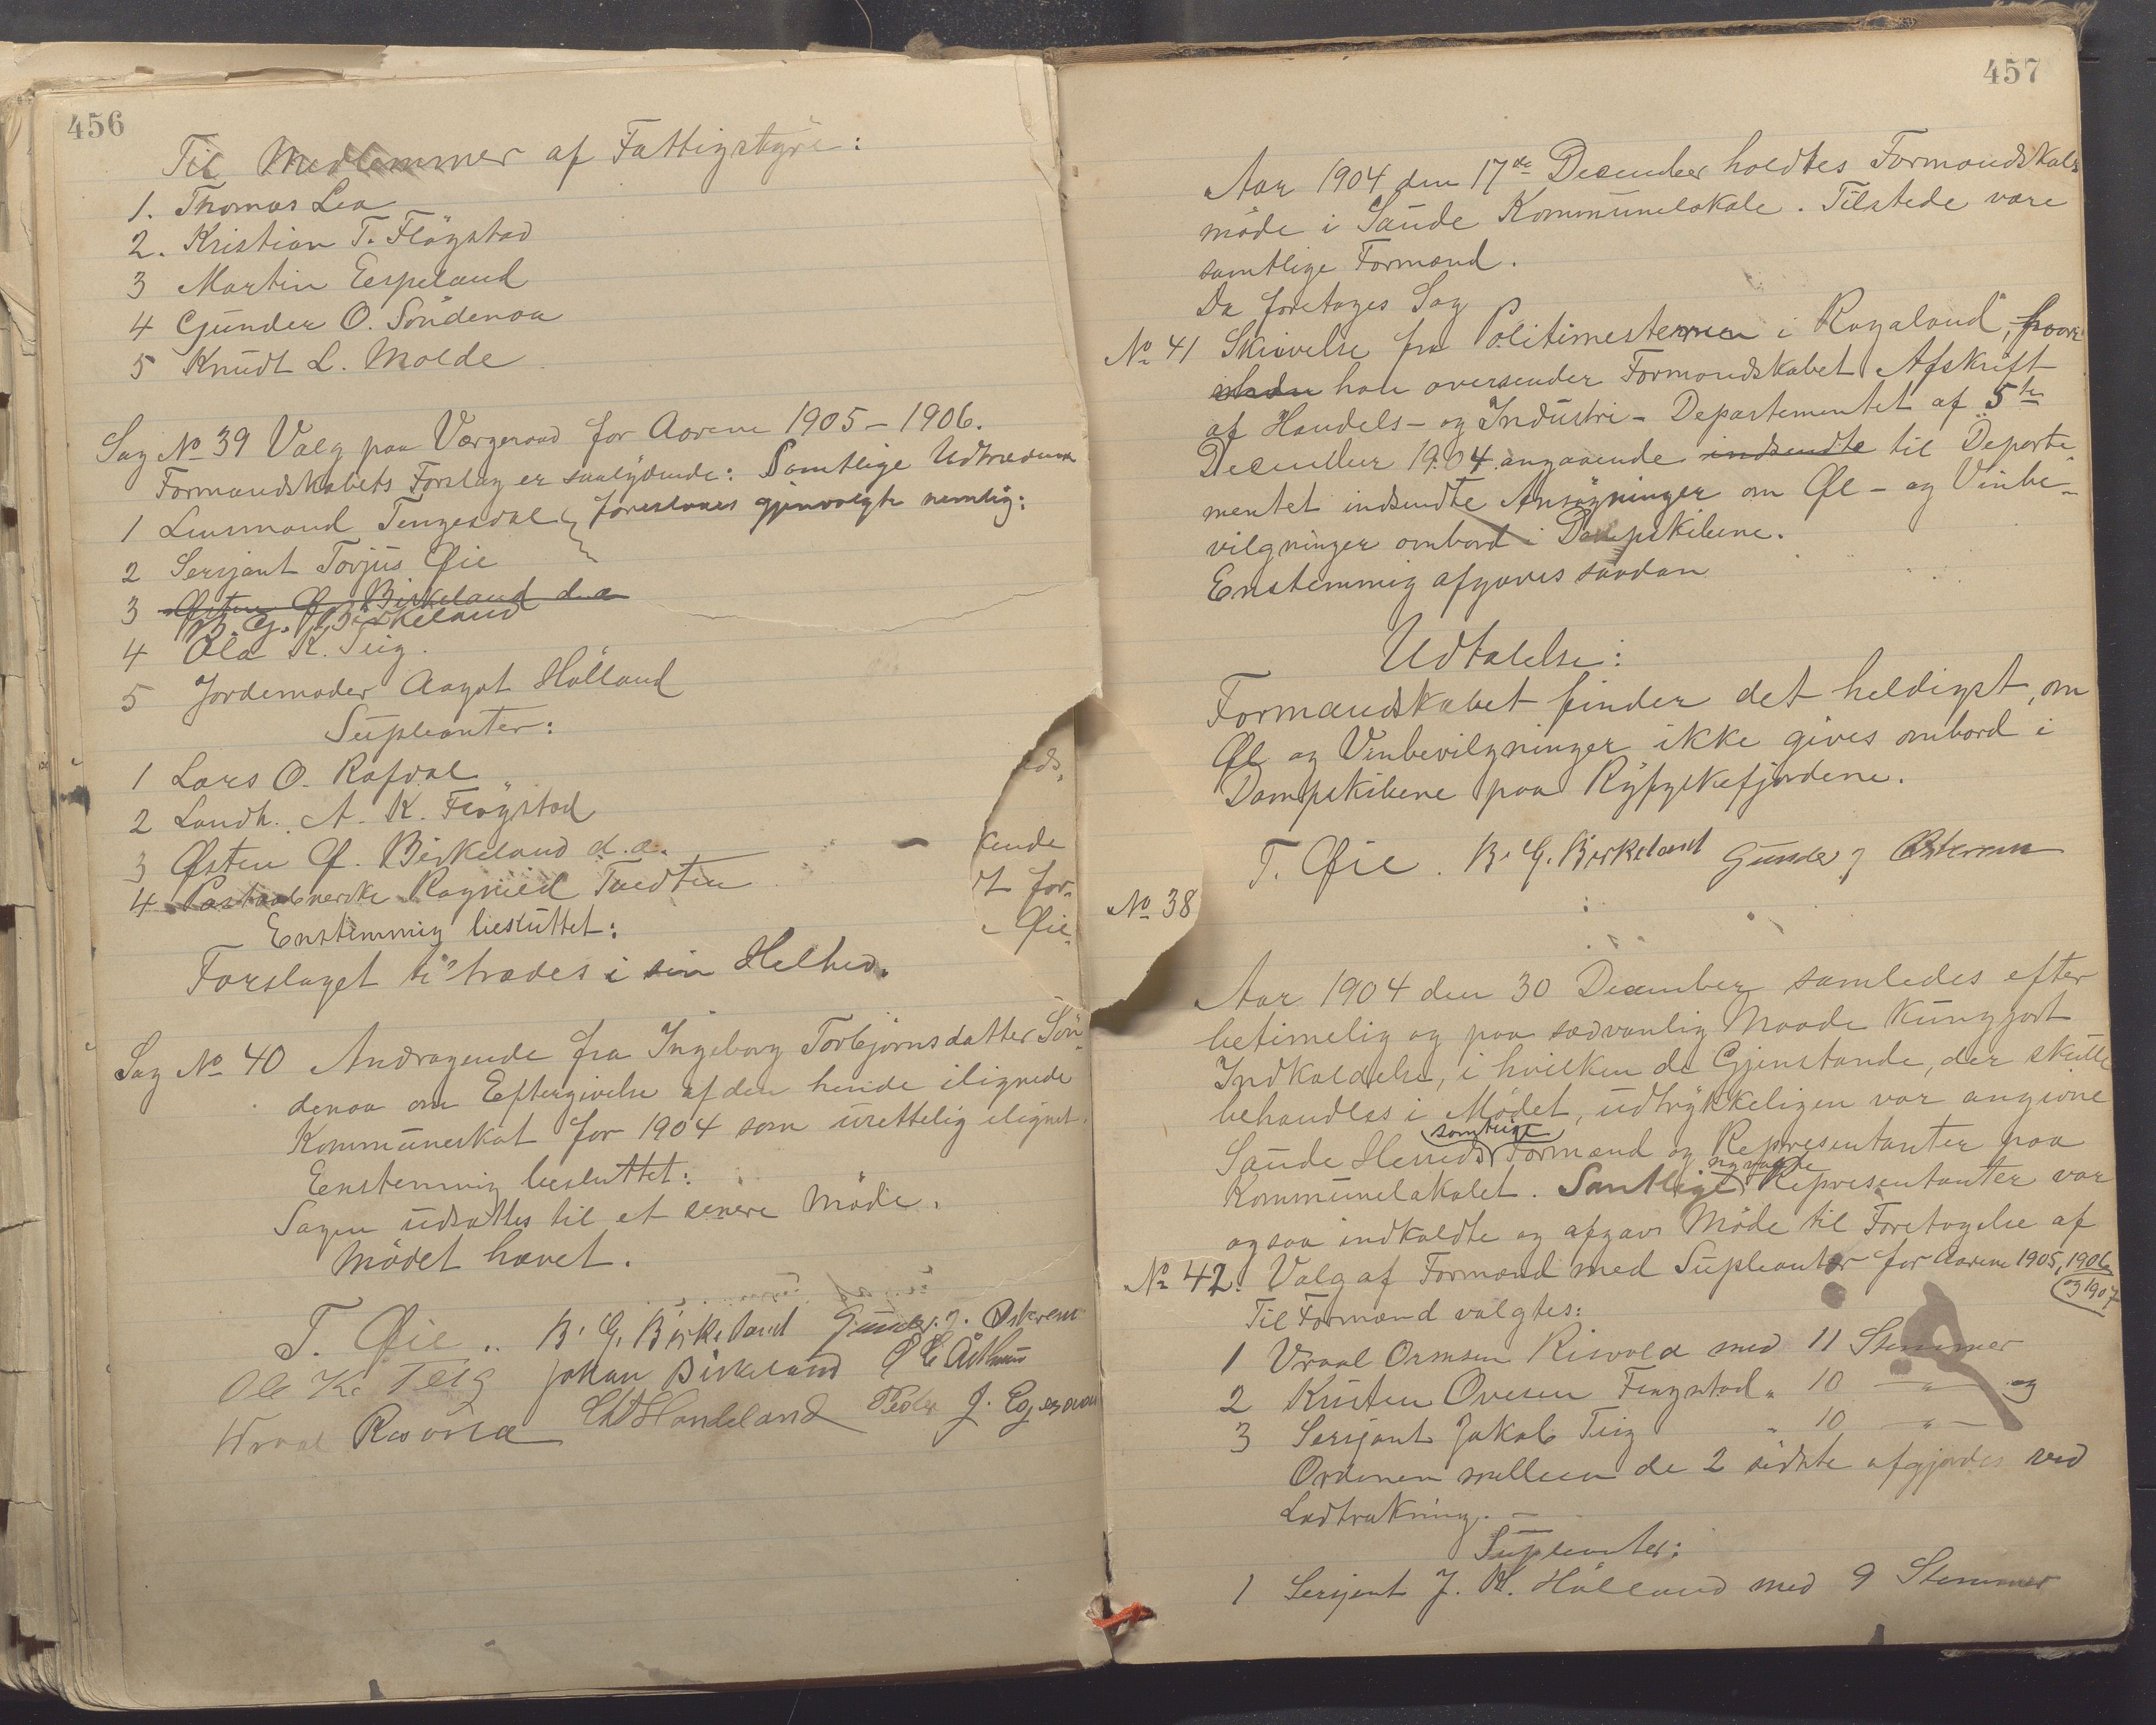 456
Til Medlemmer af Fattigstyre:
1. Thomas Lea
2. Kristian T. Flögstad
3 Martin Eespeland
4 Gunder O. Söndenaa
5 Knudt L. Molde
Sag No 39 Valg paa Værgeraad for Aarene 1905 - 1906.
Formandskabets Forslag er saalydende: Samtlige Udtrædende
1 Lensmand Tengesdal foreslaaes gjenvalgte nemlig:
2 Sersjant Torjus Øie
3 Østen Ø. Birkeland d.æ
B. G. Birkeland
4 Ola K. Teig.
5 Jordemoder Aagot Hålland
Supleanter:
1 Lars O. Rafdal
2 Landh. A. K. Flögstad
3 Østen Ø. Birkeland d.æ.
4 Postaabnerske Ragnild Tvedten
Enstemmig besluttet:
Forslaget tiltrædes i sin Helhed.
Sag No 40 Andragende fra Ingeborg Torbjørnsdatter Sön-
denaa om Eftergivelse af den hende ilignede
Kommuneskat for 1904 som urettelig ilignet.
Eenstemmig besluttet:
Sagen udsættes til et senere Möde.
Mödet hævet.
T. Øie .. B. G. Birkeland Gunder J. Østerem
Ole K. Teig Johan Birkeland
Vraal Risvold Handeland Peder J.
eds,
kende
dt for-
Øie
457
Aar 1904 den 17de December holdtes Formandskabs
möde i Saude Kommunelokale. Tilstede vare
samtlige Formænd.
Da foretages Sag
No 41 Skrivelse fra Politimesteren i Rogaland, hvor
han oversender Formandskabet Afskrift
af Handels- og Industri- Departementet af 5te
December 1904 angaaende indsendte til Departe-
mentet indsendte Ansögninger om Øl- og Vinbe-
vilgninger ombord i Dampskibene.
Enstemmig afgaves saadan
Udtalelse:
Formandskabet finder det heldigst, om
Øl og Vinbevilgninger ikke gives ombord i
Dampskibene paa Ryfylkefjordene.
T. Øie. B. G. Birkeland Gunder J Østerem
No 38
Aar 1904 den 30 December samledes efter
betimelig og paa sædvanlig Maade kungjort
Indkaldelse, i hvilken de Gjenstande, der skulle
behandles i Mödet, udtrykkeligen var angivne
samtlige
Saude Herreds Formænd og Repræsentanter paa
nyvalgte
Kommunelokalet. Samtlige Repræsentanter var
ogsaa indkaldte og afgav Möde til Foretagelse af
No 42. Valg af Formænd med Supleanter for Aarene 1905, 1906
og 1907
Til Formænd valgtes:
1 Vraal Ormsen Risvold med 11 Stemmer
2 Kristen Ovesen Flögstad " 10 — " — og
3 Sersjant Jakob Teig " 10 — " —
Ordenen mellem de 2 sidste afgjordes ved
Lodtrækning. —
Supleanter:
1 Sersjent J. H. Hålland med 9 Stemmer